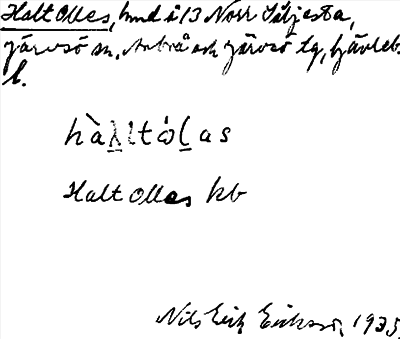 Halt Olles, hmd i 13 Norr Säljesta,
Järvsö sn, Arbrå och Järvsö tg, Gävleb.
l.
Halt Olles kb
Nils Erik Eriksson, 1935.